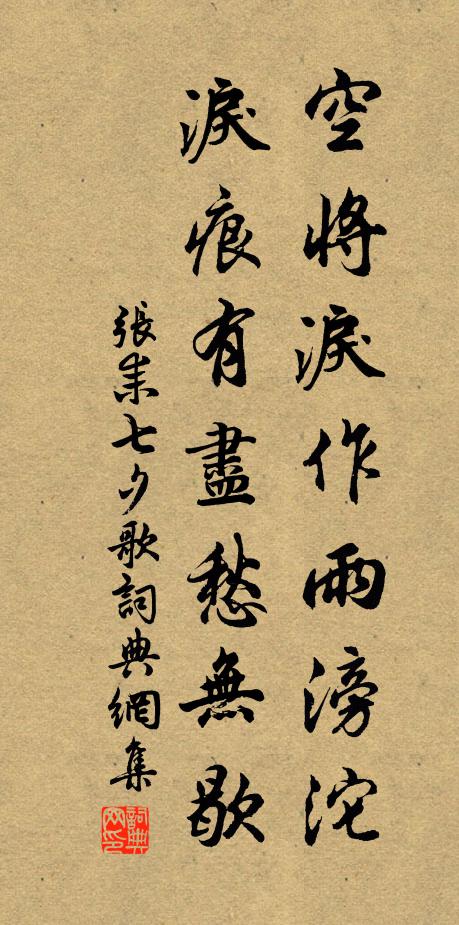 空將淚作雨滂沱
淚痕有盡愁無歇
張耒七夕歌詞典網集
詞典網印